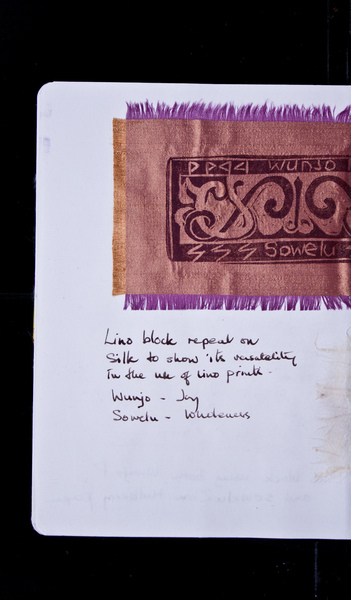 ᚹᚹ Wunjo
ᛋᛋᛋ Sowelu
Lino block repeat on
Silk to show its versatality
In the use of Lino prints -
Wunjo - Joy
Sowelu -